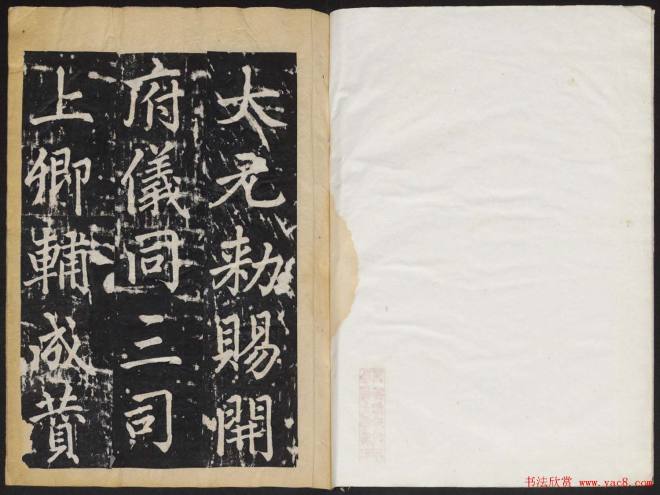 大君勑賜開
府儀同三司
上卿輔成贊
书法欣赏 www.yac8.com